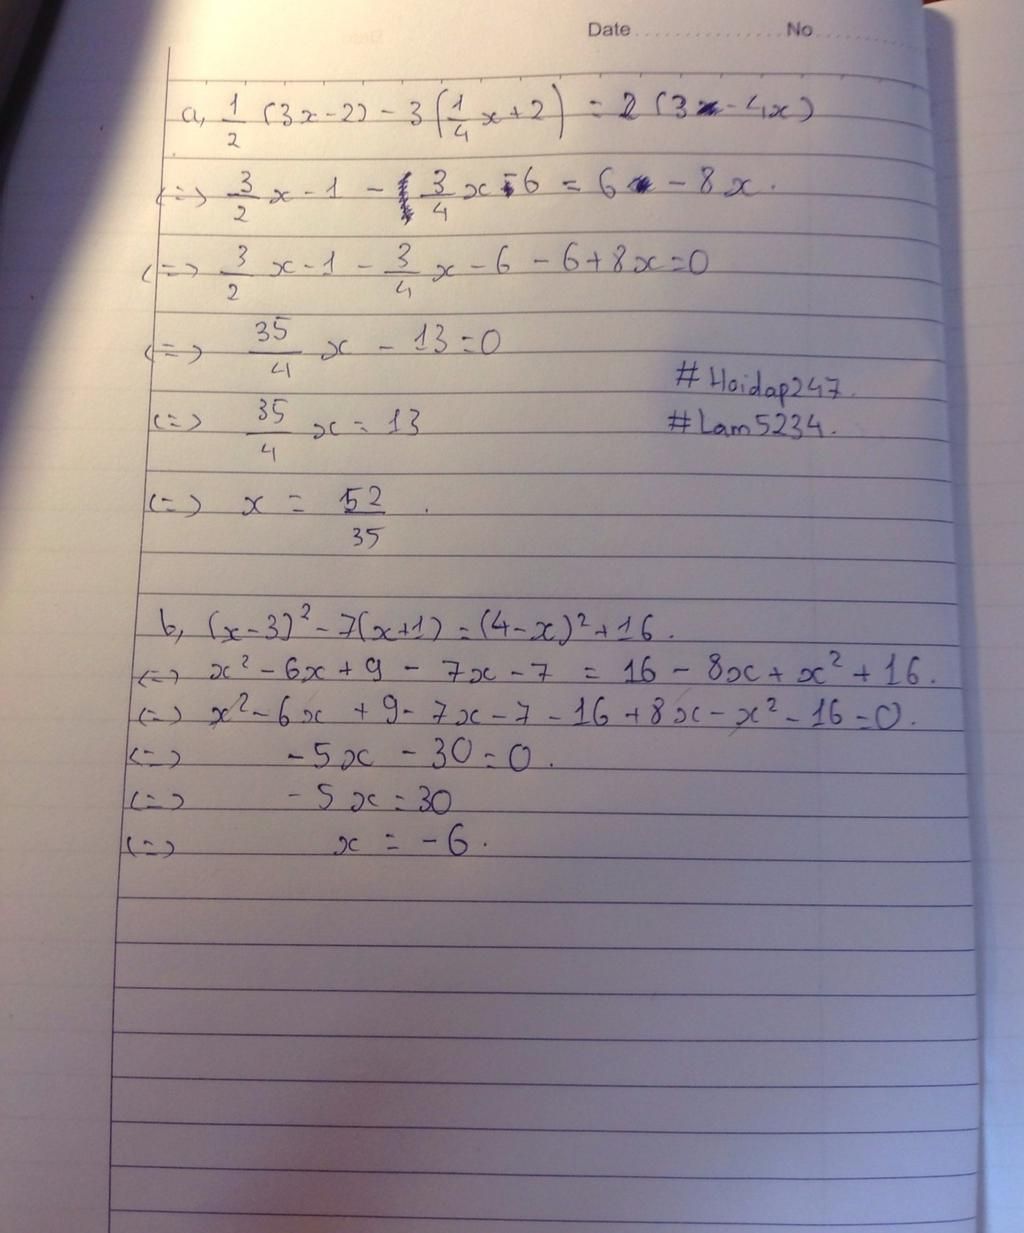 Date.................No..............
a, 1/2 (3x-2) - 3(1/4 x+2) = 2 (3 - 4x)
<=> 3/2 x - 1 - 3/4 x - 6 = 6 - 8x.
<=> 3/2 x - 1 - 3/4 x - 6 - 6 + 8x = 0
<=> 35/4 x - 13 = 0
<=> 35/4 x = 13
<=> x = 52/35 .
#Hoidap247.
#Lam5234.
b, (x-3)² - 7(x+1) = (4-x)² + 16.
<=> x² - 6x + 9 - 7x - 7 = 16 - 8x + x² + 16.
<=> x² - 6x + 9 - 7x - 7 - 16 + 8x - x² - 16 = 0.
<=> - 5x - 30 = 0.
<=> - 5x = 30
<=> x = - 6.